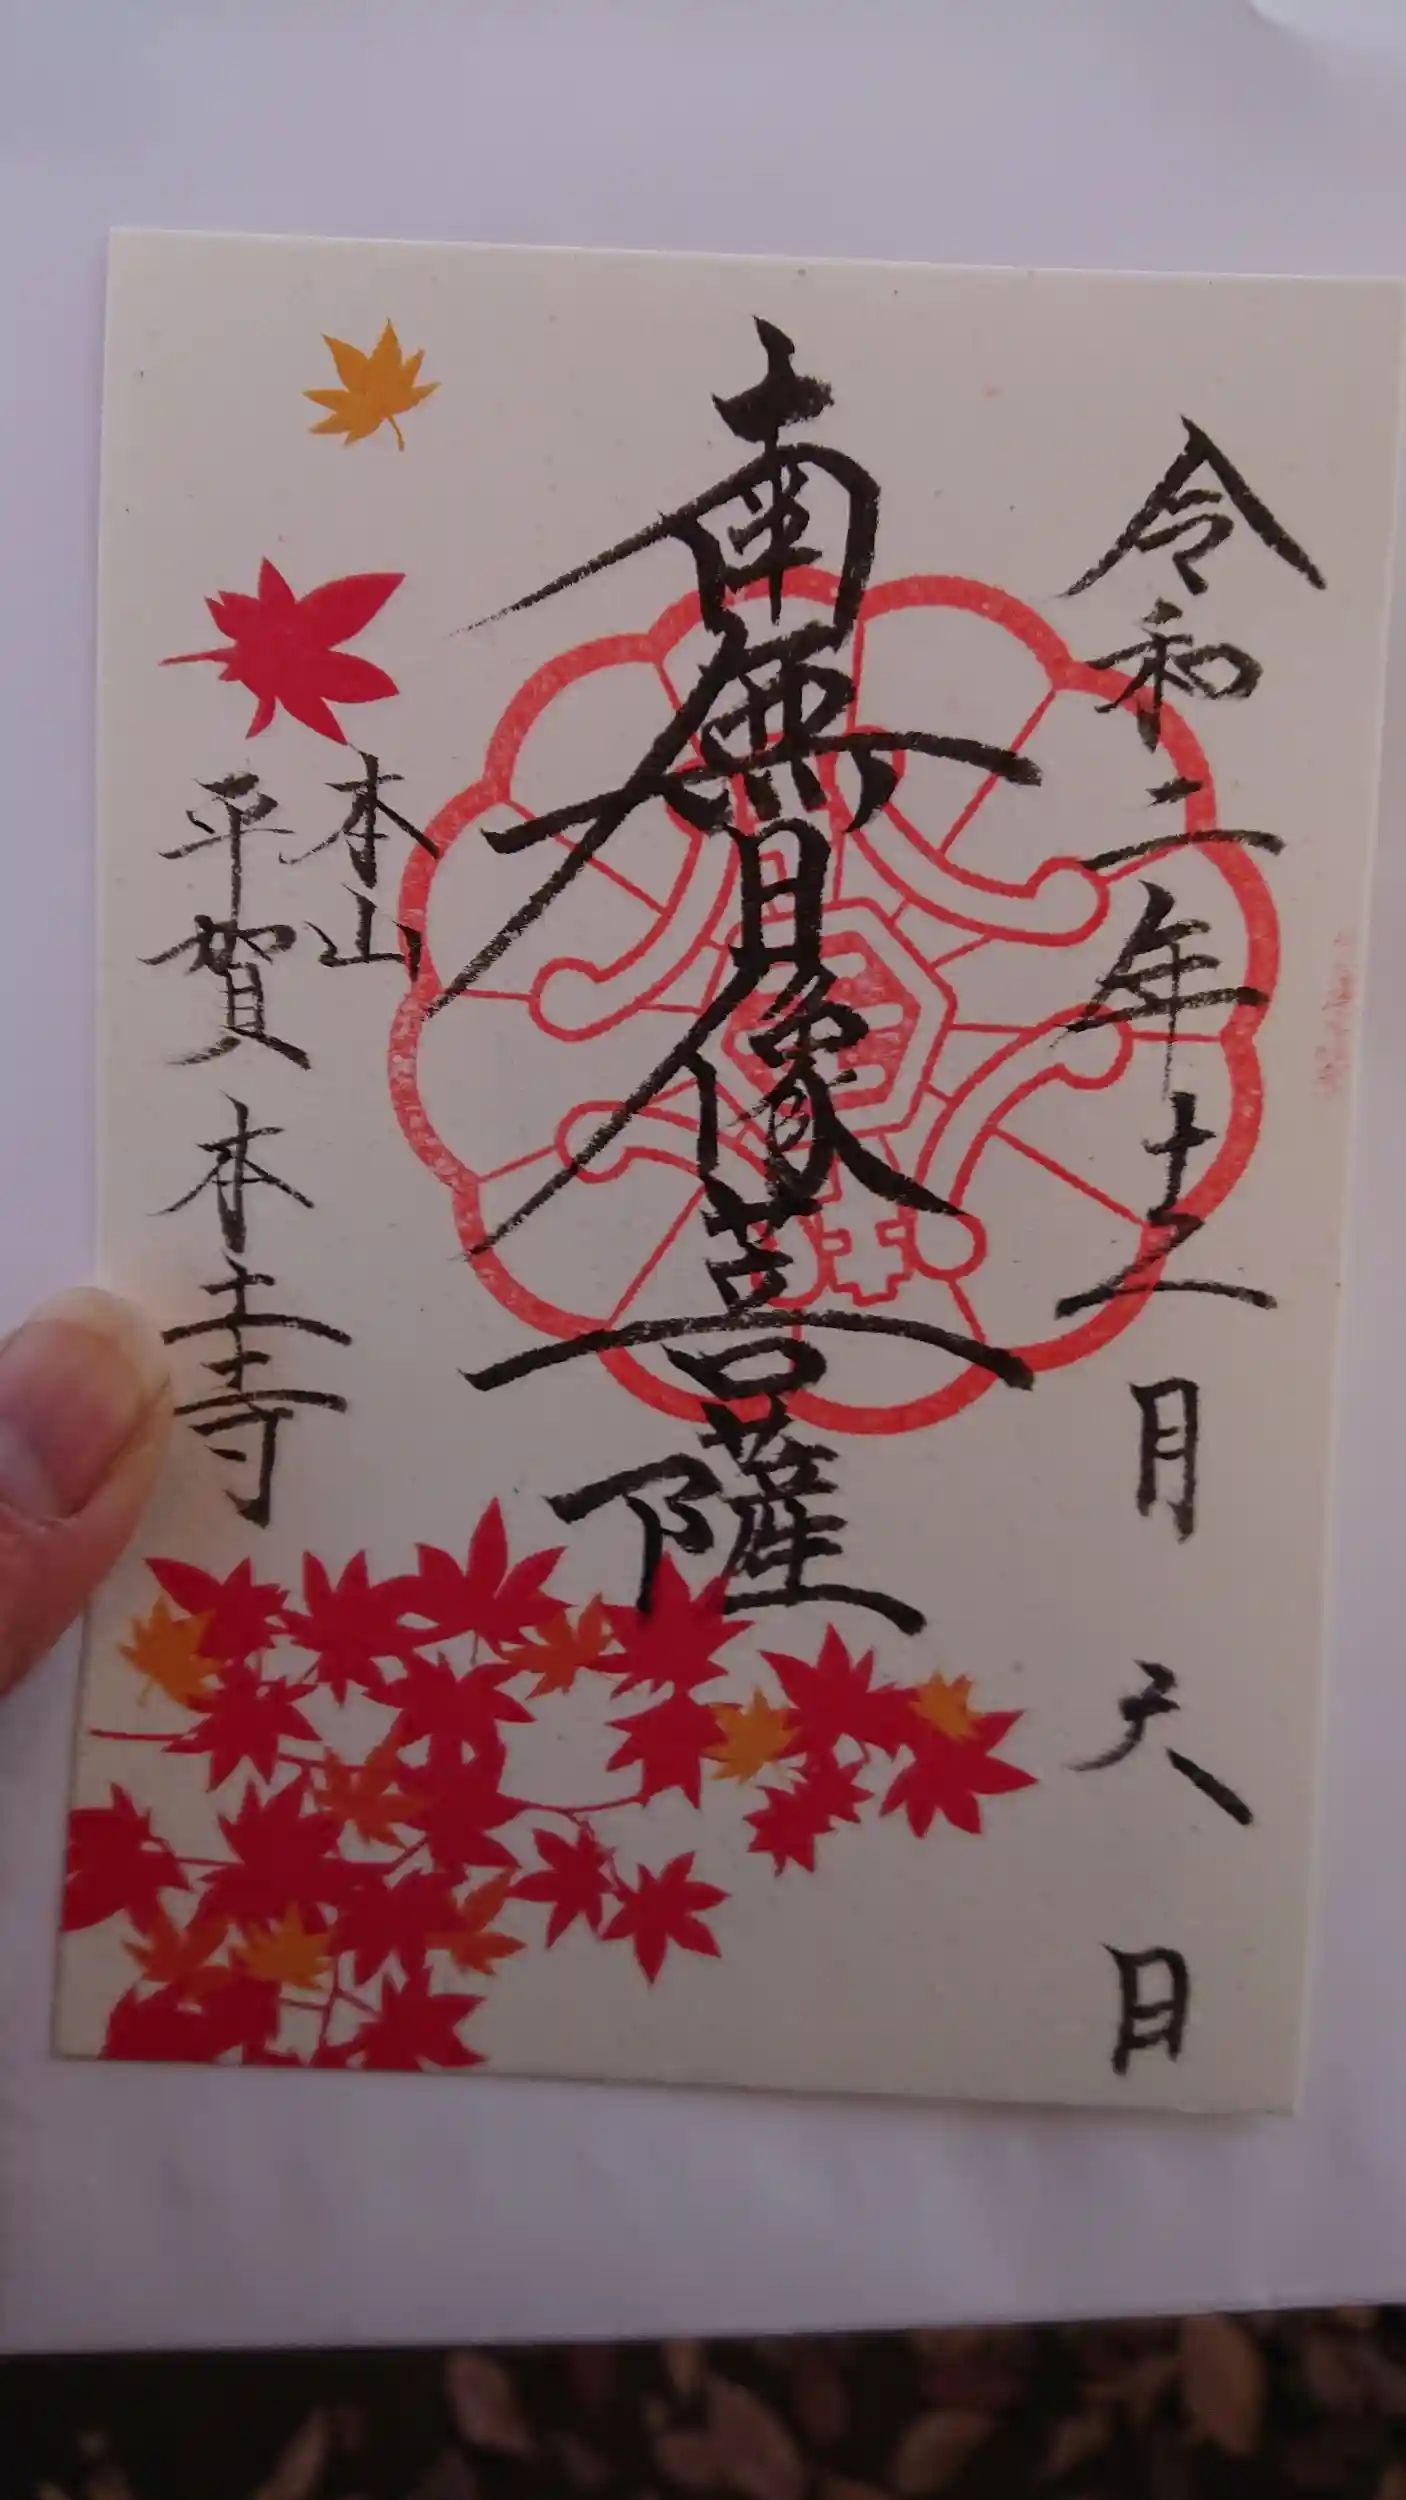 令和二年十二月六日
南無日像菩薩
本山
平賀本土寺